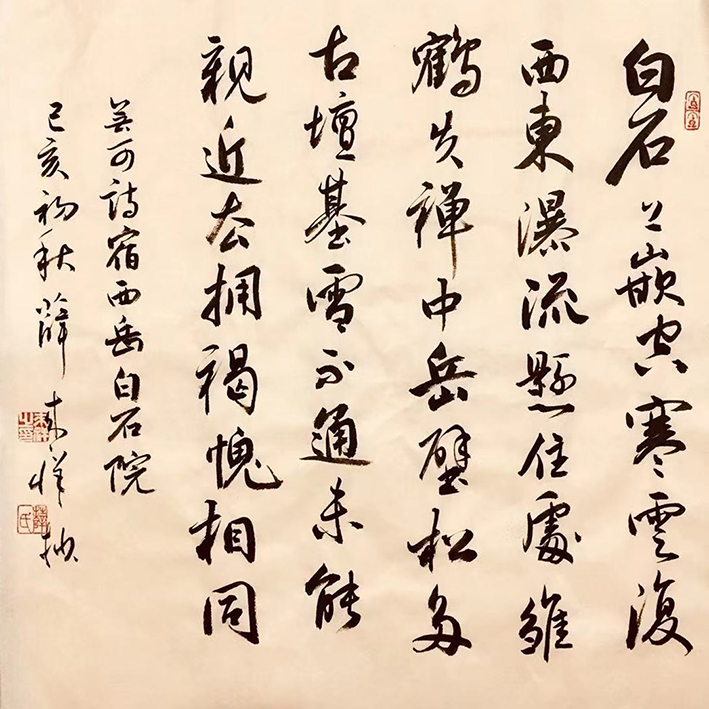 白石上嵌空寒雲復
西東瀑流懸住處雛
鶴失禪中岳壁松多
古壇基雪不通未能
親近去拥褐愧相同
無可詩宿西岳白石院
己亥初秋薛來祥抄
薛氏